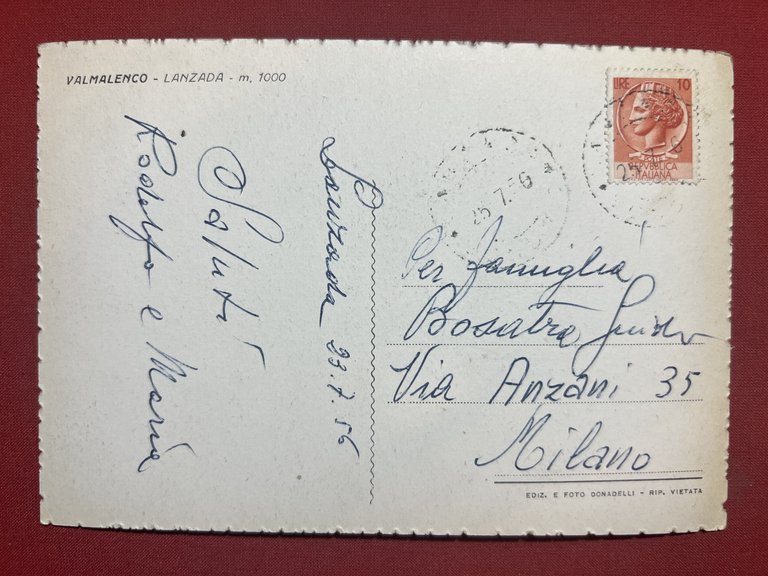 VALMALENCO - LANZADA - m. 1000
Lanzada 23.7.56
Saluti
Rodolfo e Maria
LIRE 10
REPUBBLICA
ITALIANA
25.7.56
Per famiglia
Bosatra Guido
Via Anzani 35
Milano
EDIZ. E FOTO DONADELLI - RIP. VIETATA